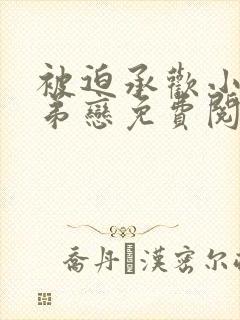 被迫承歡小
弟戀免費閱
喬丹·漢密尔